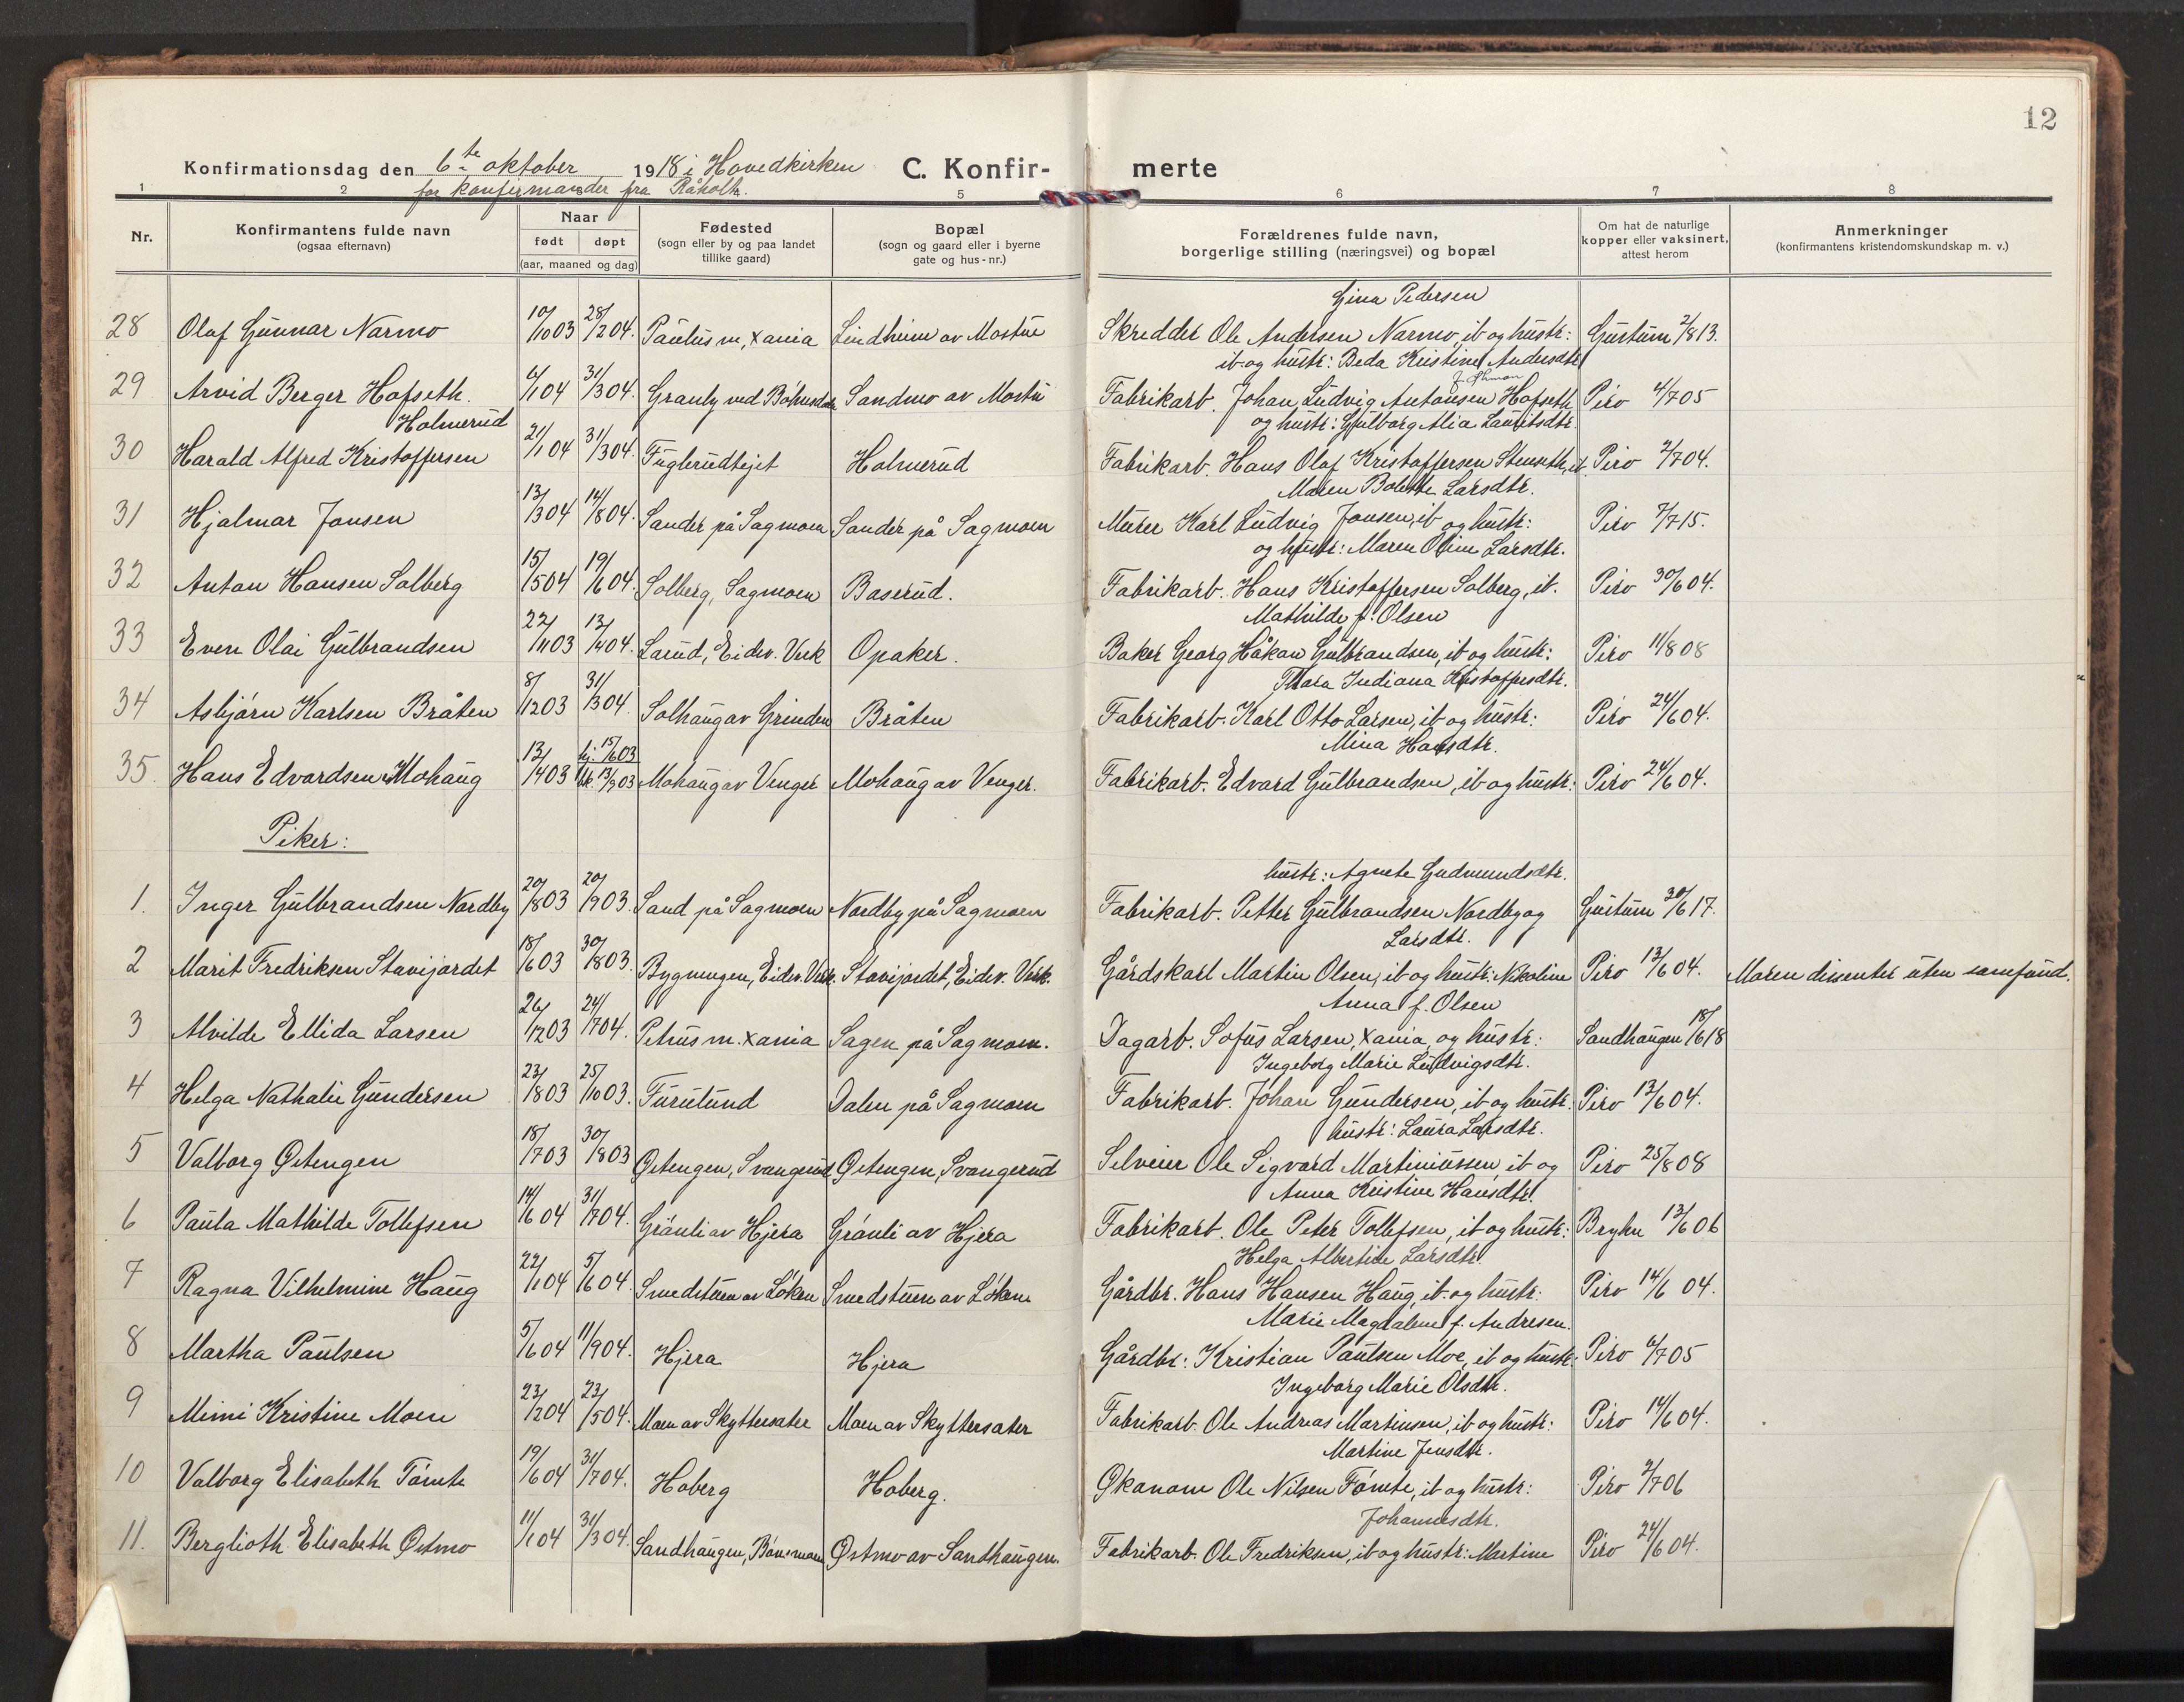 12
Konfirmationsdag den 6te oktober 1918 i Hovedkirken C. Konfir- merte
for konfirmander fra Råholt.
1 2 5 6 7 8
Nr. Konfirmantens fulde navn (ogsaa efternavn) Naar født døpt (aar, maaned og dag) Fødested (sogn eller by og paa landet tillike gaard) Bopæl (sogn og gaard eller i byerne gate og hus-nr.) Forældrenes fulde navn, borgerlige stilling (næringsvei) og bopæl Om hat de naturlige kopper eller vaksinert, attest herom Anmerkninger (konfirmantens kristendomskundskap m. v.)
Gina Pedersen
28 Olaf Gunnar Narmo 10/10 03 28/2 04. Paulus m, Xania Lindheim av Mostue Skredder Ole Andersen Narmo, ib og hustr: Gustum 2/8 13.
ib og hustr: Beda Kristine Andersdtr
29 Arvid Berger Hofseth. 6/1 04 31/3 04. Granly ved Bønsdalen Sandmo av Mostu Fabrikarb. Johan Ludvig Antonsen Hofseth Piro 4/7 05
Holmerud og hustr: Gulborg Alia Lauritsdtr.
30 Harald Alfred Kristoffersen 21/1 04 31/3 04. Fuglerudhejet Holmerud Fabrikarb. Hans Olaf Kristoffersen Stenseth, ib. Piro 2/7 04.
Maren Bolette Larsdtr.
31 Hjalmar Jonsen 13/3 04 14/8 04. Sander på Sagmoen Sander på Sagmoen Murer Karl Ludvig Jonsen, ib og hustr: Piro 7/7 15.
og hustr: Maren Oline Larsdtr.
32 Anton Hansen Solberg 15/5 04 19/6 04. Solberg, Sagmoen Baserud. Fabrikarb. Hans Kristoffersen Solberg, ib. Piro 30/6 04.
Mathilde f. Olsen
33 Even Olai Gulbrandsen 22/11 03 13/4 04. Larud, Eidsv. Verk Opaker. Baker Georg Håkon Gulbrandsen, ib og hustr: Piro 11/8 08
Thora Indiana Kristoffersdtr.
34 Asbjørn Karlsen Bråten 8/12 03 31/3 04. Solhaug av Grinden Bråten Fabrikarb. Karl Otto Larsen, ib og hustr: Piro 24/6 04.
Mina Hansdtr.
35. Hans Edvardsen Mohaug 13/4 03 hj. 15/6 03 st. 13/9 03 Mohaug av Venger Mohaug av Venger. Fabrikarb. Edvard Gulbrandsen, ib og hustr: Piro 24/6 04.
Piker:
hustr: Agnete Gudmundsdtr.
1. Inger Gulbrandsen Nordby 20/8 03 20/9 03. Sand på Sagmoen Nordby på Sagmoen Fabrikarb. Petter Gulbrandsen Nordby og Gustum 30/6 17.
Larsdtr.
2 Marit Fredriksen Stavijordet 18/6 03 30/8 03. Bygningen, Eidsv. Verk. Stavijordet, Eidsv. Verk. Gårdskarl Martin Olsen, ib og hustr: Nikoline Piro 13/6 04. Moren dissenter uten samfund.
Anna f. Olsen
3 Alvilde Ellida Larsen 26/12 03 24/7 04. Petrus m. Xania Sagen på Sagmoen. Dagarb. Sofus Larsen, Xania, og hustr: Sandhaugen 18/6 18
Ingeborg Marie Ludvigsdtr.
4 Helga Nathalie Gundersen 23/8 03 25/10 03. Furulund Dalen på Sagmoen Fabrikarb. Johan Gundersen, ib og hustr. Piro 13/6 04.
hustr: Laura Larsdtr.
5 Valborg Østengen 18/7 03 30/8 03 Østengen, Svangerud Østengen, Svangerud Selveier Ole Sigvard Martiniussen ib og Piro 25/8 08
Anna Kristine Hansdtr.
6 Paula Mathilde Tollefsen 14/6 04 31/7 04. Grønli av Hjera Grønli av Hjera Fabrikarb. Ole Peter Tollefsen, ib og hustr: Bryhn 13/6 06
Helga Albertine Larsdtr.
7 Ragna Vilhelmine Haug 22/1 04 5/6 04. Smedstuen av Løken Smedstuen av Løken Gårdbr. Hans Hansen Haug, ib. og hustr: Piro 14/6 04.
Marie Magdalene f. Andresen.
8 Martha Paulsen 5/6 04 11/9 04. Hjera Hjera Gårdbr: Kristian Paulsen Moe, ib og hustr: Piro 6/7 05
Ingeborg Marie Olsdtr.
9 Mimi Kristine Moen 23/2 04 23/5 04. Moen av Skyttersater Moen av Skyttersater Fabrikarb. Ole Andreas Martinsen, ib og hustr: Piro 14/6 04.
Martine Jensdtr.
10 Valborg Elisabeth Tømte 19/6 04 31/7 04. Hoberg Hoberg. Økonom Ole Nilsen Tømte, ib og hustr: Piro 2/7 06
Johannesdtr.
11. Berglioth Elisabeth Østmo 11/1 04 31/3 04. Sandhaugen, Bønsmoen Østmo av Sandhaugen. Fabrikarb. Ole Fredriksen, ib og hustr: Martine Piro 24/6 04.